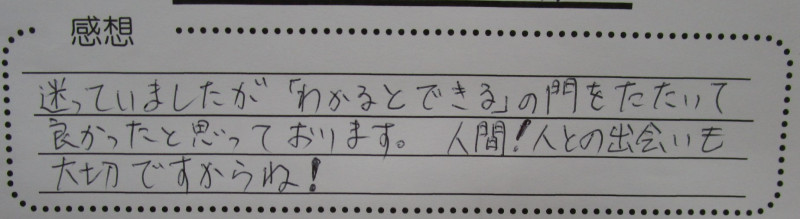 感想
迷っていましたが「わかるとできる」の門をたたいて
良かったと思っております。 人間!人との出会いも
大切ですからね!